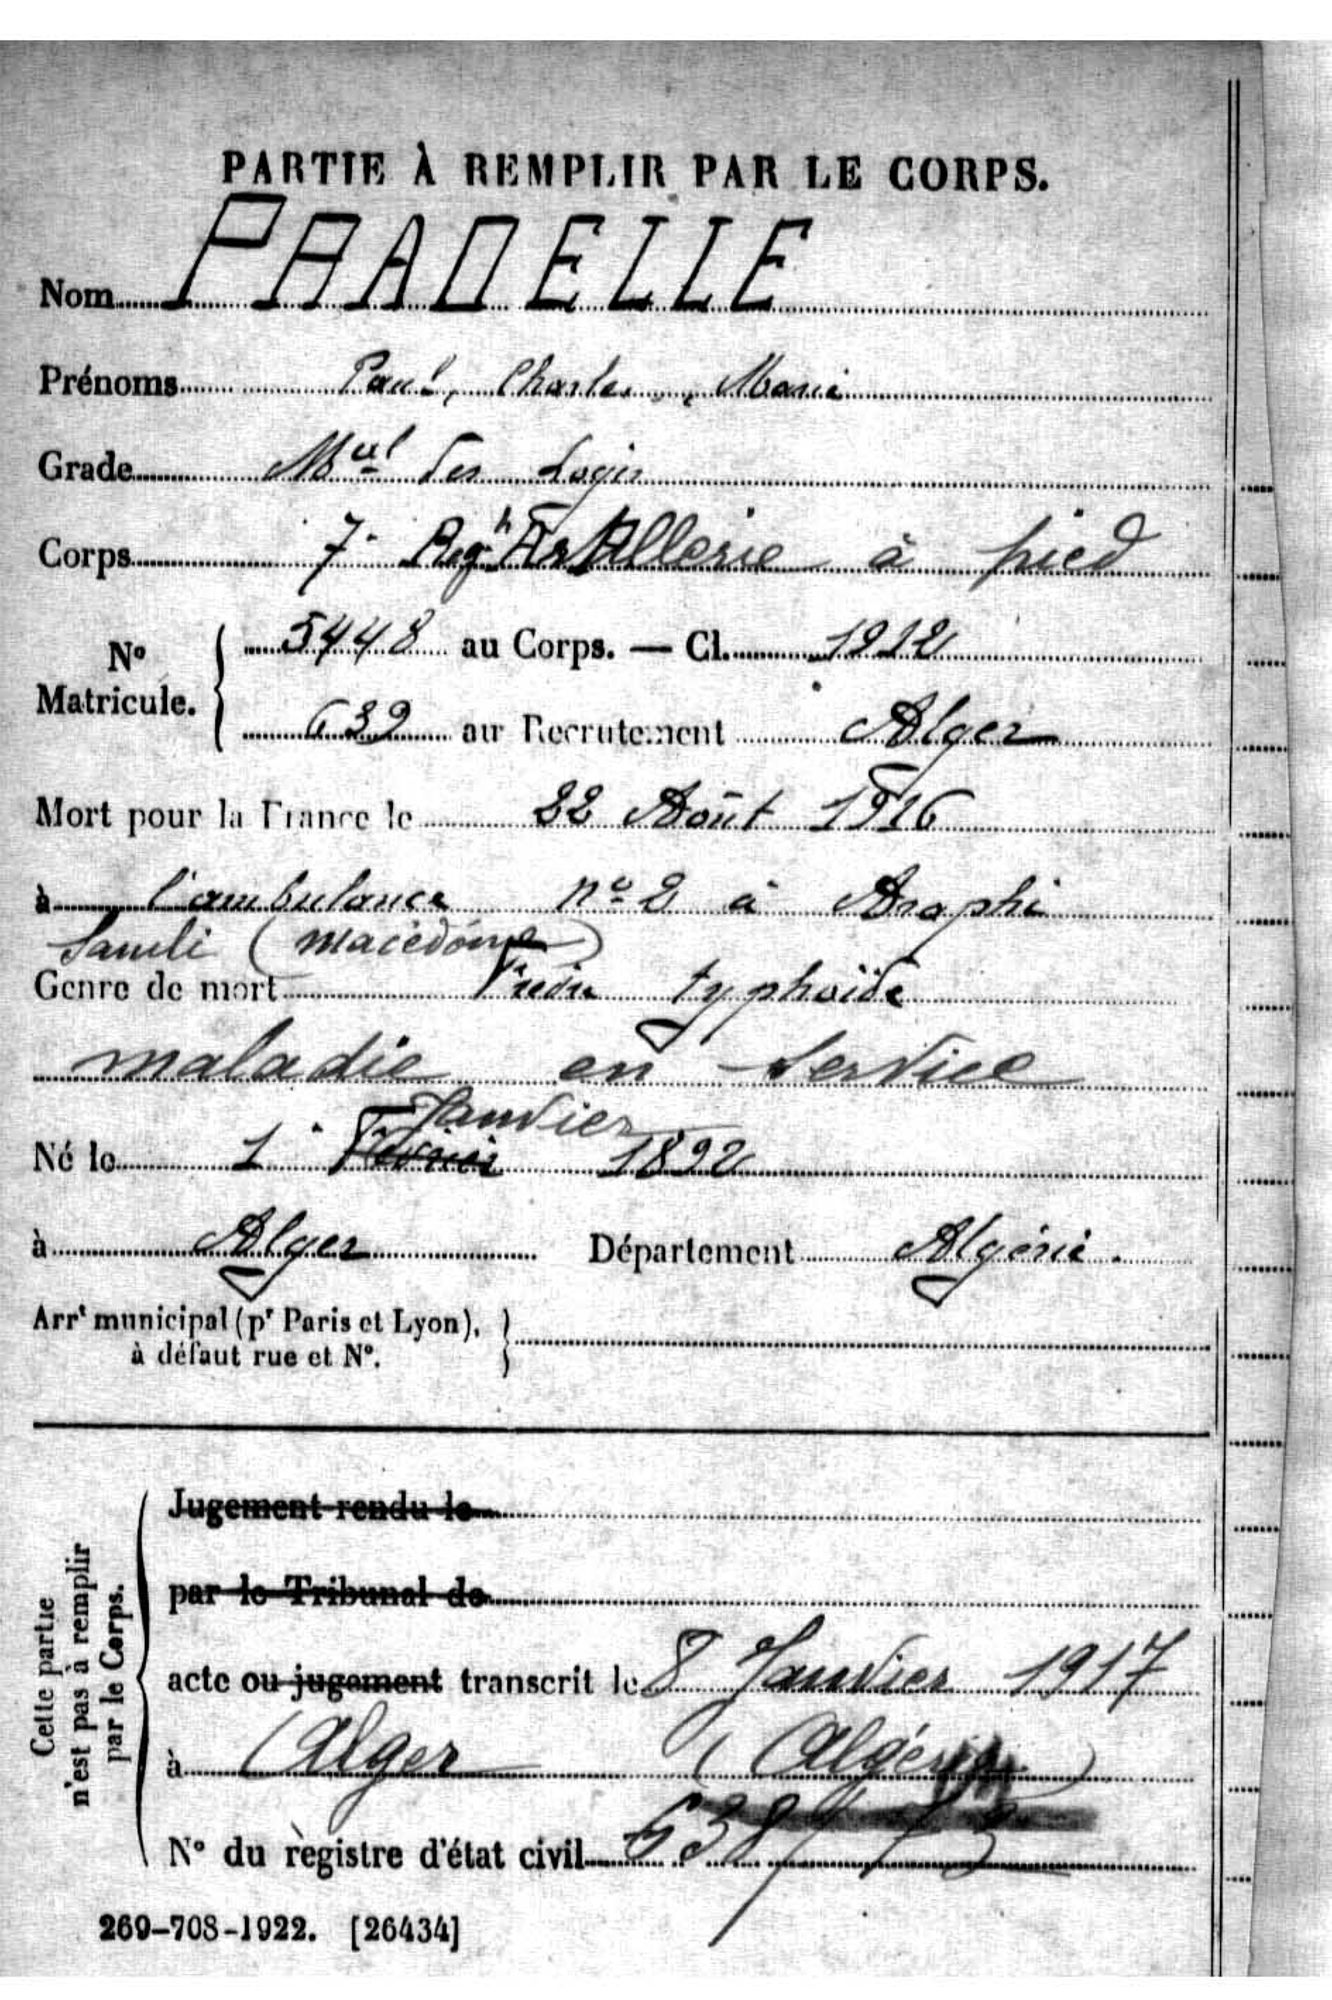 PARTIE À REMPLIR PAR LE CORPS.
Nom PRADELLE
Prénoms Paul, Charles, Marie
Grade Mal des Logis
Corps 7e Regt Artillerie à pied
No Matricule. 5448 au Corps. — Cl. 1912
639 au Recrutement Alger
Mort pour la France le 22 Août 1916
à l'ambulance no 2 à Araphi
Samli (Macédoine)
Genre de mort Fièvre typhoïde
maladie en service
Janvier
Né le 1er Février 1892
à Alger Département Algérie.
Arrt municipal (pr Paris et Lyon),
à défaut rue et No.
Cette partie
n'est pas à remplir
par le Corps.
Jugement rendu le
par le Tribunal de
acte ou jugement transcrit le 8 Janvier 1917
à Alger (Algérie)
No du registre d'état civil 638/73
269-708-1922. [26434]